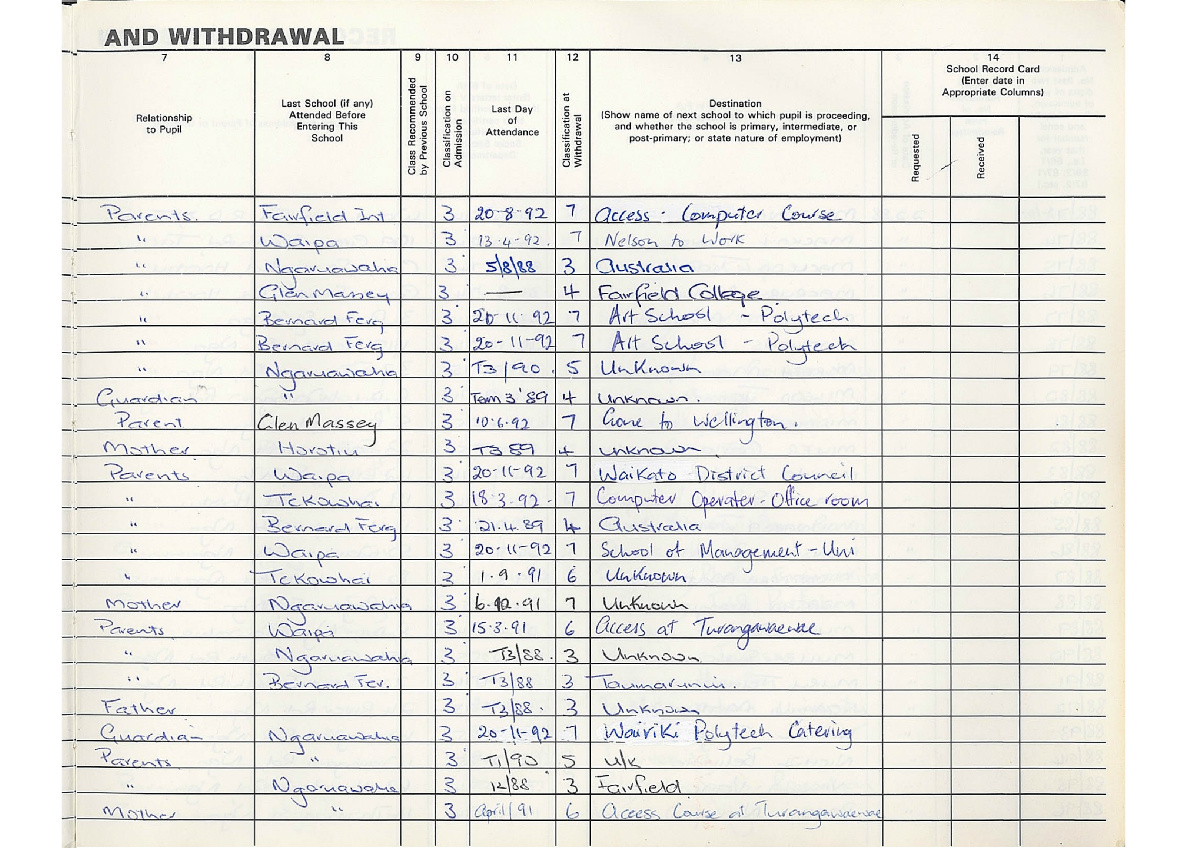 AND WITHDRAWAL
7 8 9 10 11 12 13 14
Relationship to Pupil
Last School (if any) Attended Before Entering This School
Class Recommended by Previous School
Classification on Admission
Last Day of Attendance
Classification at Withdrawal
Destination
(Show name of next school to which pupil is proceeding, and whether the school is primary, intermediate, or post-primary; or state nature of employment)
School Record Card (Enter date in Appropriate Columns)
Requested
Received
Parents. Fairfield Int 3 20-8-92 7 Access - Computer Course
" Waipa 3 13-4-92. 7 Nelson to Work
" Ngaruawahia 3 5/8/88 3 Australia
" Glen Massey 3 — 4 Fairfield College
" Bernard Ferg 3 20-11-92 7 Art School - Polytech
" Bernard Ferg 3 20-11-92 7 Art School - Polytech
" Ngaruawahia 3 T3/90. 5 Unknown
Guardian " 3 Term 3 '89 4 Unknown.
Parent Glen Massey 3 10.6.92 7 Gone to Wellington.
Mother Horotiu 3 T3 89 4 unknown
Parents Waipa 3 20-11-92 7 Waikato District Council
" TeKowhai 3 18.3.92. 7 Computer Operater - Office room
" Bernard Ferg 3 21.4.89 4 Australia
" Waipa 3 20-11-92 7 School of Management - Uni
" TeKowhai 3 1.9.91 6 Unknown
Mother Ngaruawahia 3 91 7 Unknown
Parents Waipa 3 15.3.91 6 Access at Turangawaewae
" Ngaruawahia 3 T3/88. 3 Unknown
" Bernard Fer. 3 T3/88 3 Taumarunui.
Father 3 T3/88. 3 Unknown
Guardian Ngaruawahia 3 20-11-92 7 Wairiki Polytech Catering
Parents " 3 T1/90 5 U/K
" Ngaruawahia 3 12/88 3 Fairfield
Mother " 3 April/91 6 Access Course at Turangawaewae